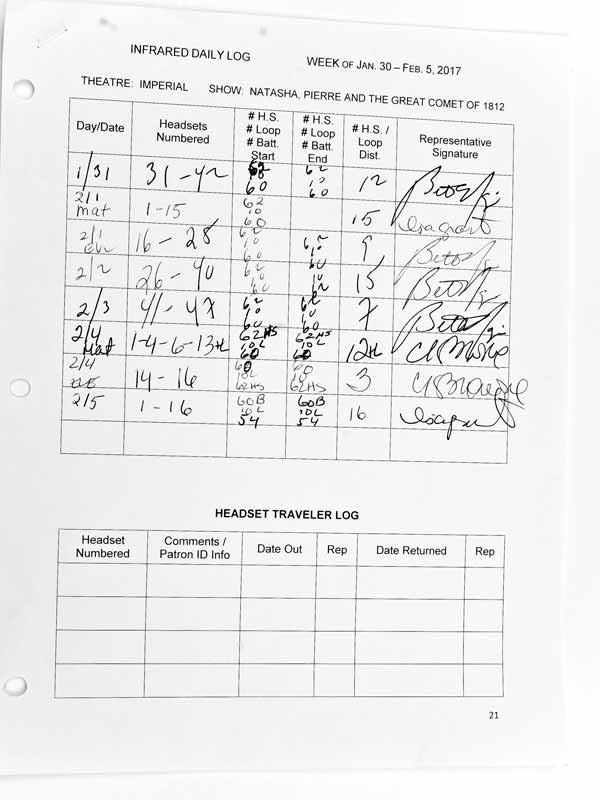 INFRARED DAILY LOG WEEK OF JAN. 30 – FEB. 5, 2017
THEATRE: IMPERIAL SHOW: NATASHA, PIERRE AND THE GREAT COMET OF 1812
Day/Date Headsets Numbered # H.S. # Loop # Batt. Start # H.S. # Loop # Batt. End # H.S. / Loop Dist. Representative Signature
1/31 31-42 62 10 60 62 10 60 12
2/1 mat 1-15 62 10 60 15
2/1 eve 16-28 62 10 60 62 10 60 9
2/2 26-40 62 10 60 60 10 62 15
2/3 41-47 62 10 60 62 10 60 7
2/4 Mat 1-4-6-13 62HS 10L 60 62HS 10L 60
2/4 14-16 60 10L 62HS 60 10L 62HS 3
2/5 1-16 60B 10L 54 60B 10L 54 16
HEADSET TRAVELER LOG
Headset Numbered Comments / Patron ID Info Date Out Rep Date Returned Rep
21